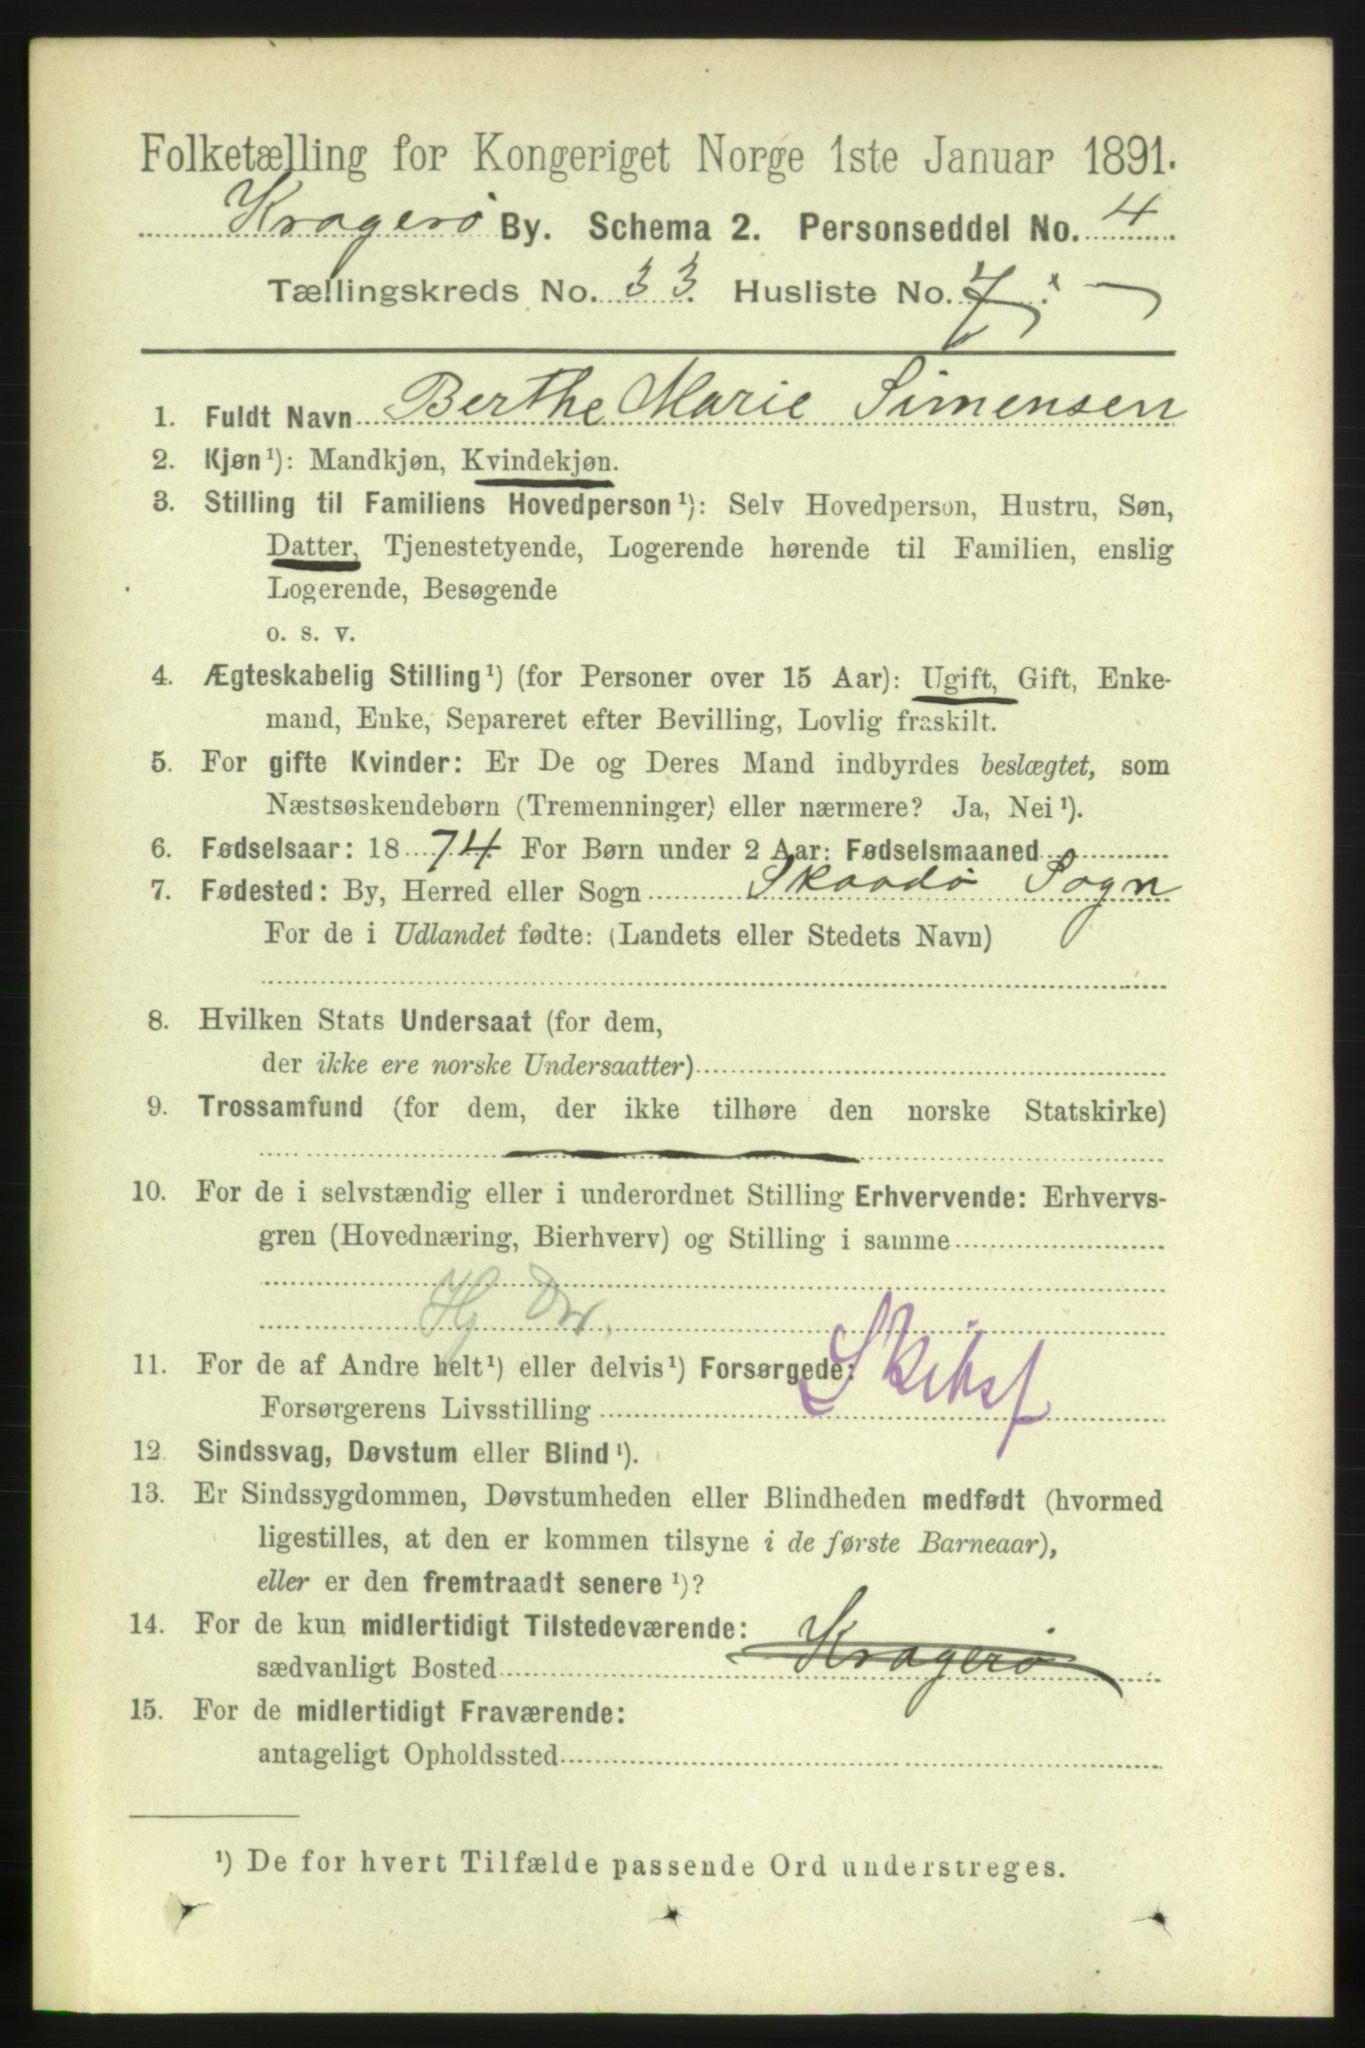 Folketælling for Kongeriget Norge 1ste Januar 1891.
Kragerø By. Schema 2. Personseddel No. 4
Tællingskreds No. 33. Husliste No. 7.
1. Fuldt Navn Berthe Marie Simensen
2. Kjøn ¹): Mandkjøn, Kvindekjøn.
3. Stilling til Familiens Hovedperson ¹): Selv Hovedperson, Hustru, Søn,
Datter, Tjenestetyende, Logerende hørende til Familien, enslig
Logerende, Besøgende
o. s. v.
4. Ægteskabelig Stilling ¹) (for Personer over 15 Aar): Ugift, Gift, Enke-
mand, Enke, Separeret efter Bevilling, Lovlig fraskilt.
5. For gifte Kvinder: Er De og Deres Mand indbyrdes beslægtet, som
Næstsøskendebørn (Tremenninger) eller nærmere? Ja, Nei ¹).
6. Fødselsaar: 18 74. For Børn under 2 Aar: Fødselsmaaned
7. Fødested: By, Herred eller Sogn Skaadø Sogn
For de i Udlandet fødte: (Landets eller Stedets Navn)
8. Hvilken Stats Undersaat (for dem,
der ikke ere norske Undersaatter)
9. Trossamfund (for dem, der ikke tilhøre den norske Statskirke)
10. For de i selvstændig eller i underordnet Stilling Erhvervende: Erhvervs-
gren (Hovednæring, Bierhverv) og Stilling i samme
Hj
11. For de af Andre helt ¹) eller delvis ¹) Forsørgede: Skibsf
Forsørgerens Livsstilling
12. Sindssvag, Døvstum eller Blind ¹).
13. Er Sindssygdommen, Døvstumheden eller Blindheden medfødt (hvormed
ligestilles, at den er kommen tilsyne i de første Barneaar),
eller er den fremtraadt senere ¹)?
14. For de kun midlertidigt Tilstedeværende:
sædvanligt Bosted Kragerø
15. For de midlertidigt Fraværende:
antageligt Opholdssted
¹) De for hvert Tilfælde passende Ord understreges.